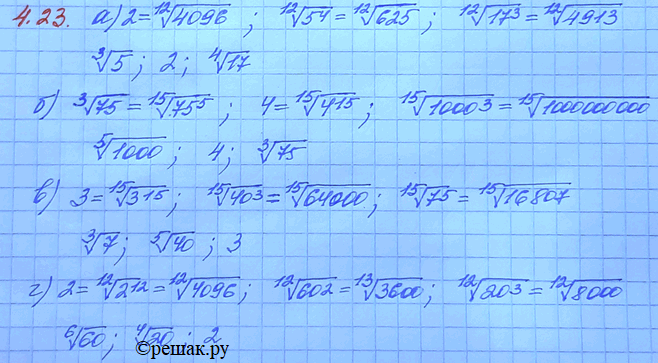 4.23. а) 2 = ¹²√4096 ; ¹²√5⁴ = ¹²√625 ; ¹²√17³ = ¹²√4913
³√5 ; 2 ; ⁴√17
б) ³√75 = ¹⁵√75⁵ ; 4 = ¹⁵√4¹⁵ ; ¹⁵√1000³ = ¹⁵√1000000000
⁵√1000 ; 4 ; ³√75
в) 3 = ¹⁵√3¹⁵ ; ¹⁵√40³ = ¹⁵√64000 ; ¹⁵√7⁵ = ¹⁵√16807
³√7 ; ⁵√40 ; 3
г) 2 = ¹²√2¹² = ¹²√4096 ; ¹²√60² = ¹³√3600 ; ¹²√20³ = ¹²√8000
⁶√60 ; ⁴√20 ; 2
©решак.ру